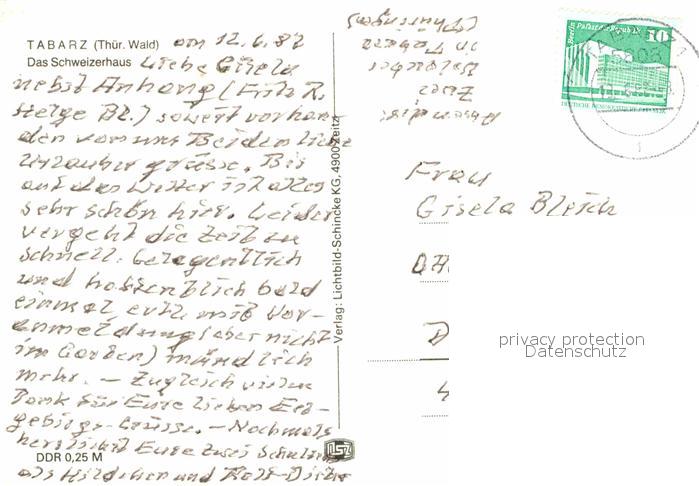 TABARZ (Thür. Wald) am 12.6.82
Das Schweizerhaus Liebe Gisela
nebst Anhang (Fritz R.
Helge Bl.) soweit vorhan
den von uns Beiden liebe
Urlauber grüsse. Bis
auf das Wetter ist alles
sehr schön hier. Leider
vergeht die Zeit zu
schnell. Gelegentlich
und hoffentlich bald
einmal, evtl. mit Vor-
anmeldung (aber nicht
im Garten) mündlich
mehr. – Zugleich vielen
Dank für Eure lieben Erz-
gebirgs-Grüsse. – Nochmals
herzlichst Eure zwei
als und Rolf-Dieter
DDR 0,25 M
Verlag: Lichtbild-Schincke KG, 4900 Zeitz
Absender:
Zurzt
Urlauber
in Tabarz
(Thüringen)
Berlin, Palast der Republik
10
DEUTSCHE DEMOKRATISCHE REPUBLIK
5808
Frau
Gisela Bleich
D
4
privacy protection
Datenschutz